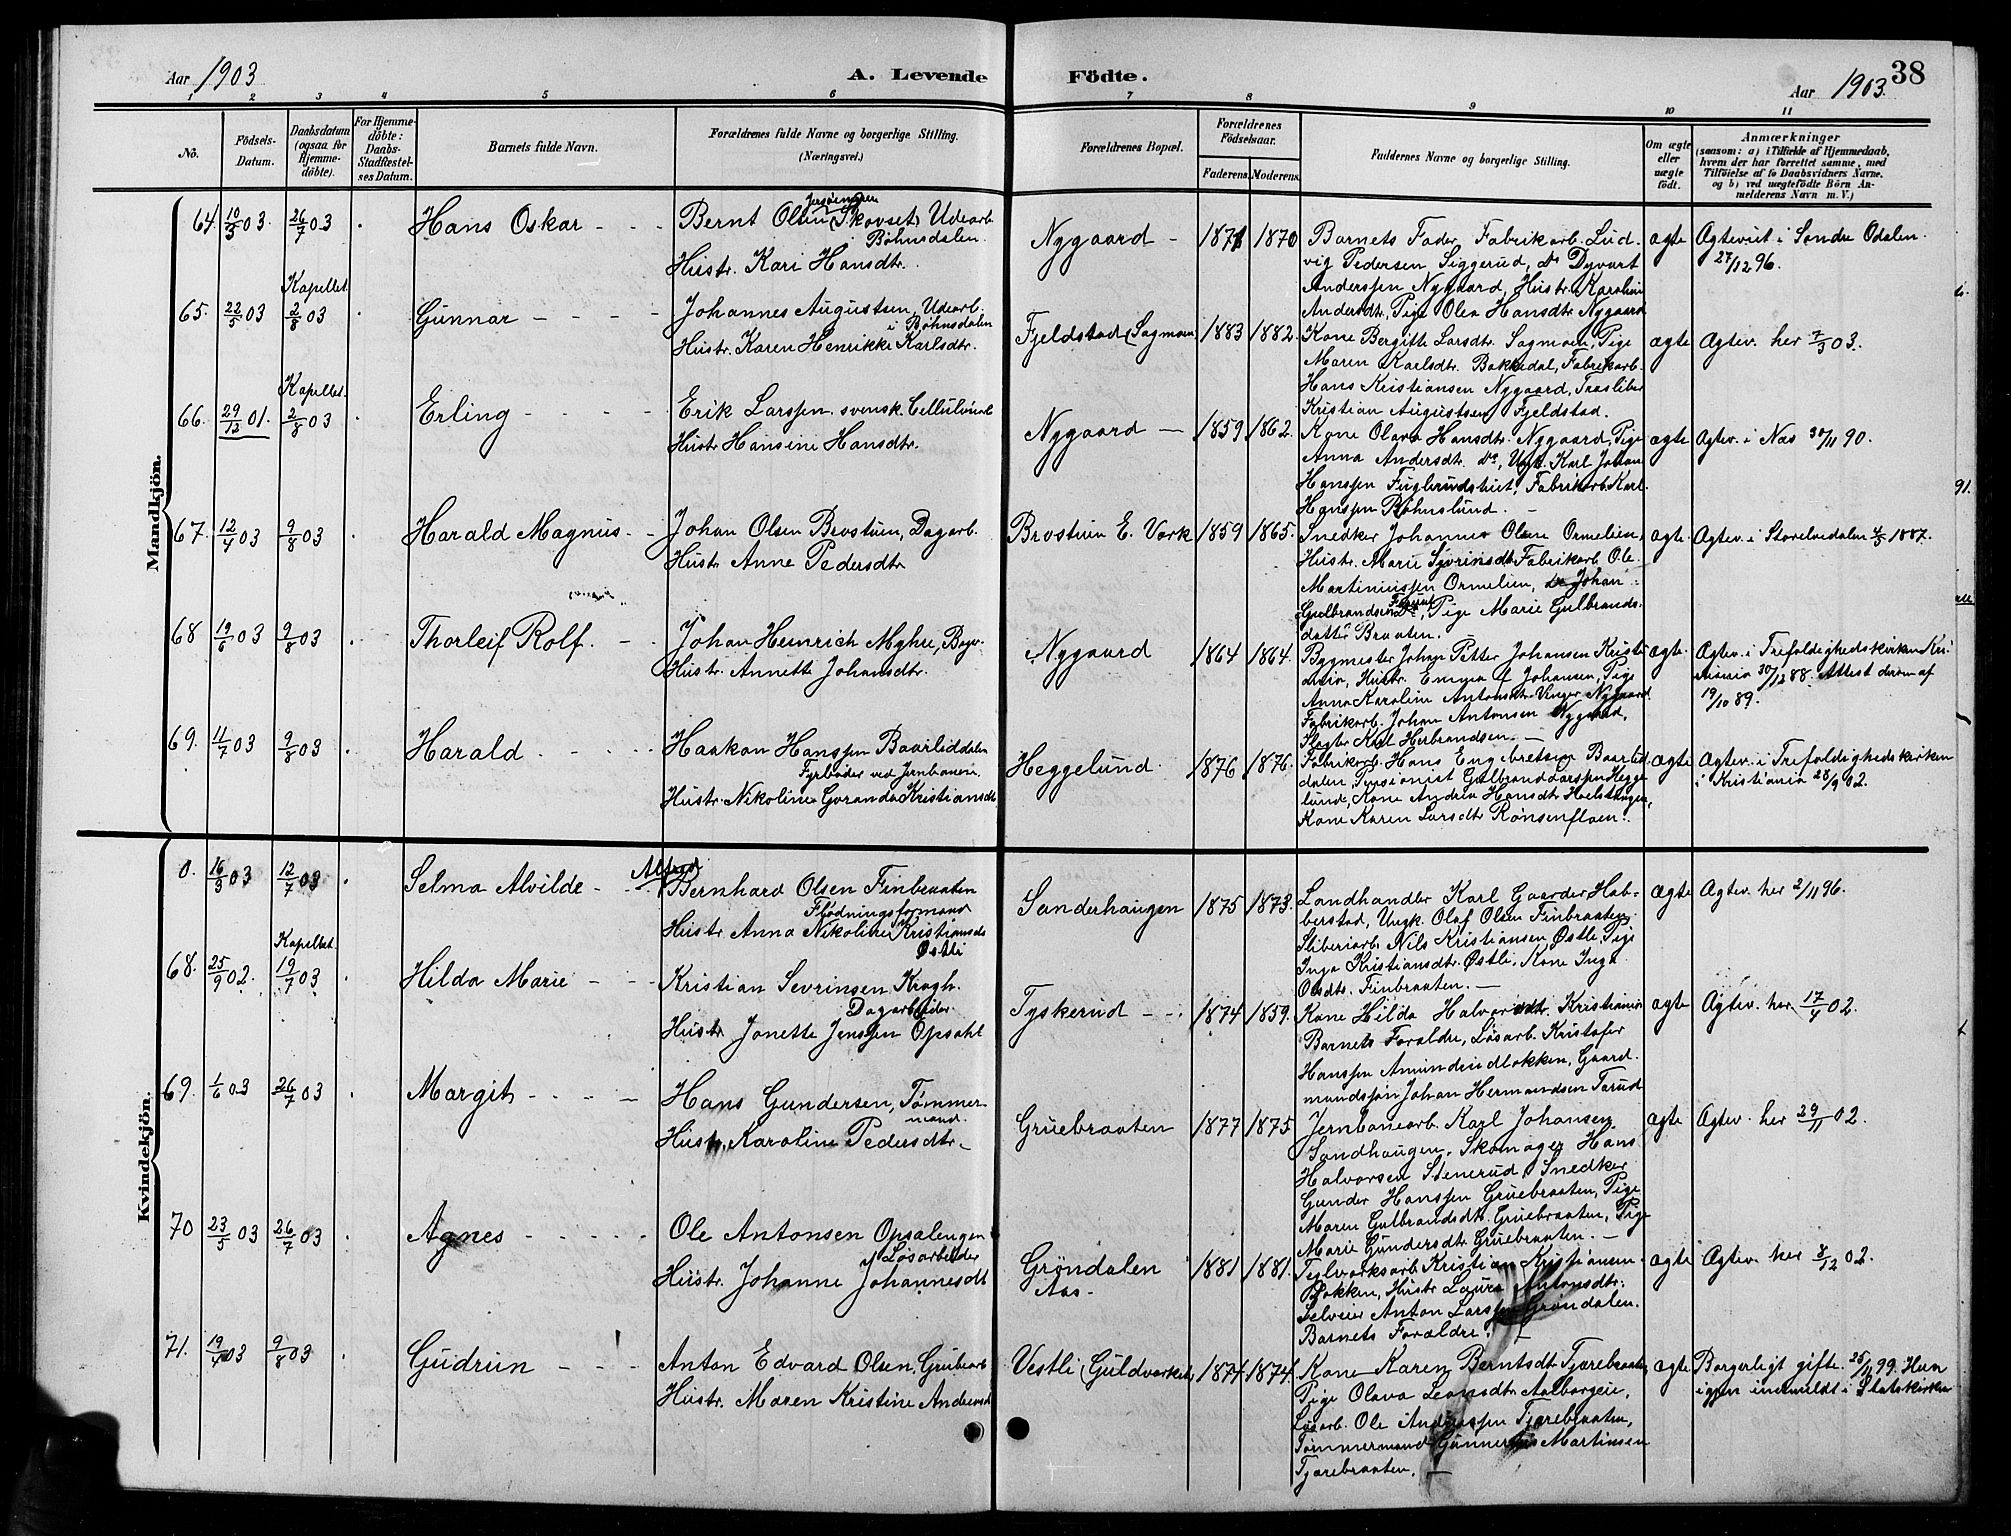 Aar 1903
A. Levende Födte.
Aar 1903.
38
1 2 3 4 5 6 7 8 9 10 11
No.
Födsels-Datum.
Daabsdatum (ogsaa for Hjemme-döbte).
For Hjemme-döbte: Daabs-Stadfæstel-ses Datum.
Barnets fulde Navn.
Forældrenes fulde Navne og borgerlige Stilling.
(Næringsvei.)
Forældrenes Bopæl.
Forældrenes Födselsaar.
Faderens. Moderens.
Faddernes Navne og borgerlige Stilling.
Om ægte eller uægte födt.
Anmærkninger
(saasom: a) i Tilfælde af Hjemmedaab,
hvem der har forrettet samme, med
Tilföielse af to Daabsvidners Navne,
og b) ved uægtefödte Börn An-
melderens Navn m. V.)
Mandkjön.
64. 10/3 03 26/7 03 Hans Oskar
Bernt Olsen Skovset, Udearb.
i Bøhnsdalen.
Hustr. Kari Hansdtr.
Nygaard 1871 1870
Barnets Fader, Fabrikarb. Lud-
vig Pedersen Siggerud, do Dyvart
Anderssen Nygaard, Hustr. Karoline
Andersdtr, Pige Olea Hansdtr Nygaard
ægte
Ægteviet i Søndre Odalen
27/12 96.
65. 22/5 03 Kapellet 2/8 03 Gunnar
Johannes Augustsen, Udearb.
i Bøhnsdalen
Hustr. Karen Henrikke Karlsdtr.
Fjeldstad (Sagmoen) 1883 1882.
Kone Bergitte Larsdtr. Sagmoen, Pige
Maren Karlsdtr. Bakkedal, Fabrikarb.
Hans Kristiansen Nygaard, Træsliber
Kristian Augustsen Fjeldstad.
ægte Ægtev. her 7/3 03.
66. 29/12 01. Kapellet 2/8 03 Erling
Erik Larssen. svensk. Cellulosearb
Hustr Hansine Hansdtr.
Nygaard 1859 1862.
Kone Olava Hansdtr. Nygaard, Pige
Anna Andersdtr. do, Ungk. Karl Johan
Hanssen Fuglerudstuet, Fabrikarb. Karl
Hanssen Bøhnslund.
ægte Ægtev. i Næs 30/11 90.
67. 12/4 03 9/8 03 Harald Magnus
Johan Olsen Brostuen, Dagarb.
Hustr Anne Pedersdtr
Brostuen E. Værk 1859 1865.
Snedker Johannes Olsen Ormelien,
Hustr. Marie Syvrinsdtr Fabrikarb. Ole
Martiniussen Ormelien, do Johan
Gulbrandsen, Pige Marie Gulbrands-
datter Braaten.
ægte. Ægtev. i Storelvedalen 4/5 1887.
68 19/6 03 9/8 03 Thorleif Rolf.
Johan Heinrich Myhre, Bogv.
Hustr. Annette Johansdtr.
Nygaard 1864 1864.
Bygmester Johan Petter Johansen Kristi-
ania, Hustr. Emma Johansen, Pige
Anna Karoline Antonsdtr Vinger Nygaard
Fabrikarb. Johan Antonsen Nygaard,
Slagter Karl Herbrandsen.
ægte. Ægtev. i Trefoldighedskirken Kri-
stiania 30/12 88. Attest derom af
19/10 89.
69. 11/7 03 9/8 03 Harald
Haakon Hanssen Baarliddalen
Fyrbøder ved Jernbanen.
Hustr. Nikoline Goranda Kristiansdt
Heggelund 1876 1876.
Fabrikarb. Hans Engebretsen Baarlid-
dalen, Pensionist Gulbrand Larssen Hegge-
lund, Kone Andrea Hansdtr Hoelshagen,
Kone Karen Larsdtr Rønsenfloen.
ægte Ægtev. i Trefoldighedskirken
i Kristiania 28/9 02.
Kvindekjön.
0. 16/3 03 12/7 03 Selma Alvilde
Alfred
Bernhard Olsen Finbraaten
Flødningsformand
Hustr Anna Nikoline Kristiansdt
Østli
Sanderhaugen 1875 1873.
Landhandler Karl Gaarder Hab-
berstad, Ungk. Olaf Olsen Finbraaten
Sliberiarb. Nils Kristiansen Østli, Pige
Inga Kristiansdtr. Østli, Kone Inga
Olsdtr. Finbraaten.
ægte Ægtev. her 2/11 96.
68. 25/9 02. Kapellet 19/7 03 Hilda Marie
Kristian Sevrinsen Kragh.
Dagarbeider.
Hustr Jonette Jenssen Opsahl
Tyskerud 1874 1859.
Kone Hilda Halvorsdtr. Kristiania
Barnets Forældre, Løsarb. Kristofer
Hanssen Amundrudløkken, Gaard-
mandssøn Johan Hermandsen Tarud
ægte Ægtev. her 17/4 02.
69. 1/6 03 26/7 03 Margit
Hans Gundersen, Tømmer-
mand.
Hustr. Karoline Pedersdtr.
Gruebraaten 1877 1875
Jernbanearb. Karl Johansen
Sandhaugen, Skomager Hans
Halvorsen Stenerud, Snedker
Gunder Hanssen Gruebraaten, Pige
Maren Gulbrandsdtr. Gruebraaten, Pige
Marie Gundersdtr. Gruebraaten.
ægte Ægtev. her 29/11 02.
70 23/5 03 26/7 03 Agnes
Ole Antonsen Opsalengen
Løsarbeider
Hustr. Johanne Johannesdt
Grøndalen
Aas 1881 1881.
Teglværksarb. Kristian Kristiansen
Bakken, Hustr Laura Antonsdtr.
Selveier Anton Larssen Grøndalen.
Barnets Forældre.
ægte Ægtev. her 8/12 02.
71. 19/4 03 9/8 03 Gudrun
Anton Edvard Olsen, Grubearb
Hustr. Maren Kristine Andersdt
Vestli (Guldværket) 1874 1874.
Kone Karen Berntsdtr Tjærebraaten,
Pige Olava Leonsdtr Aalborgeie,
Løsarb. Ole Anderssen Tjærebraaten,
Tømmermand Gunnerius Martinsen
Tjærebraaten.
ægte Borgerligt gifte 25/11 99. Hun
igjen indmeldt i Statskirken